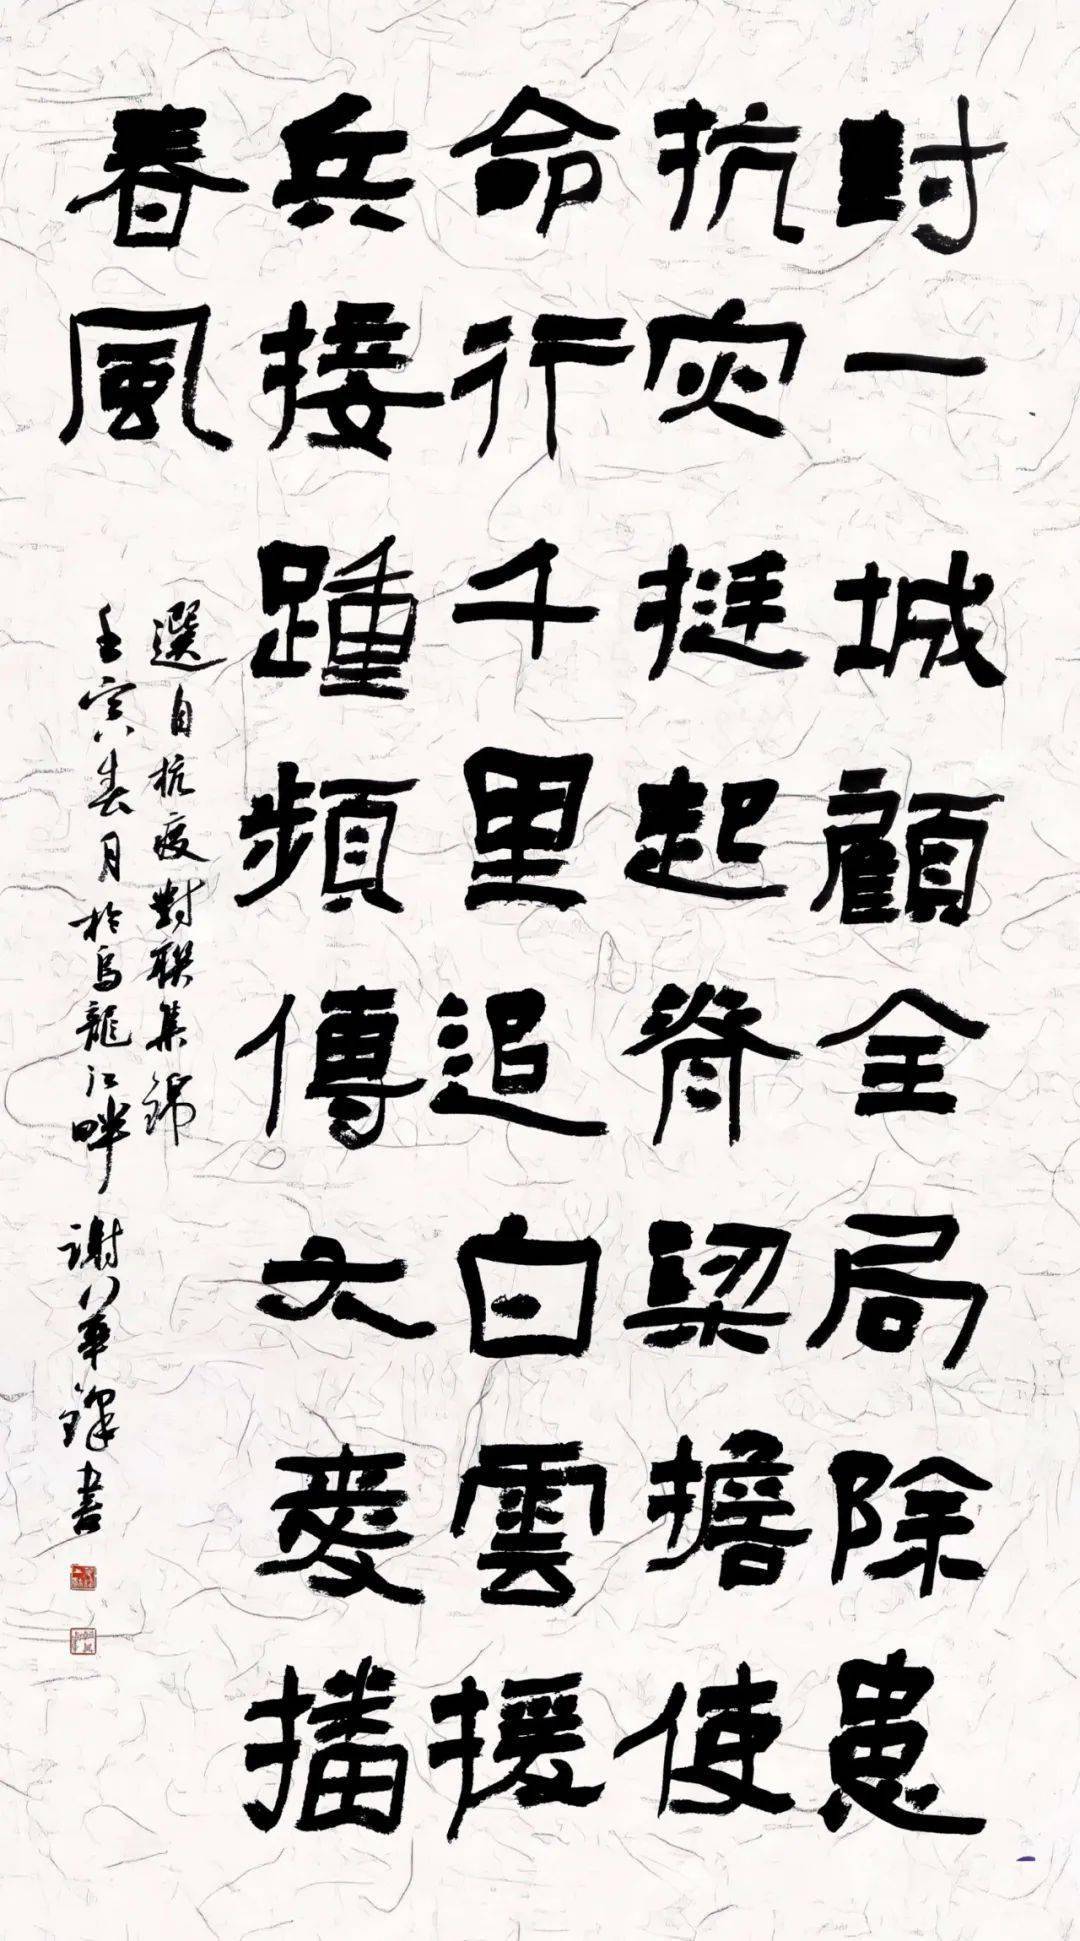 封一城顧全局除患
抗灾挺起脊梁擔使
命行千里追白雲援
兵接踵頻傳大愛播
春風
選自抗疫對聯集錦
壬寅春月於烏龍江畔 謝華鋒書